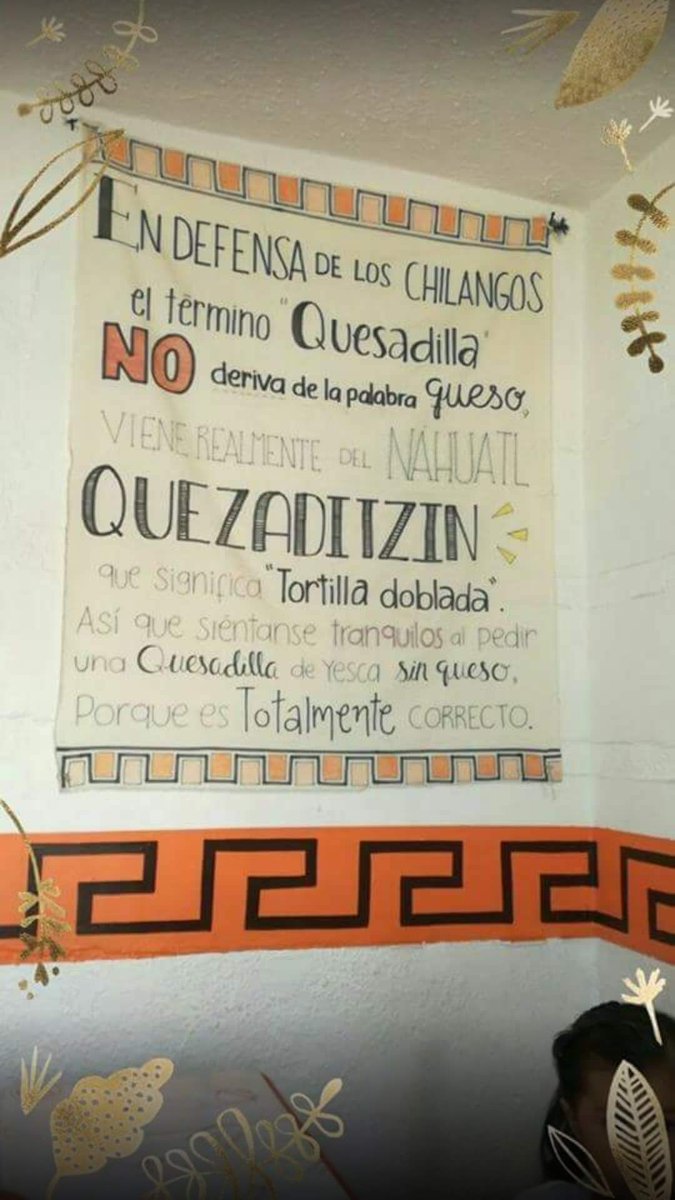 EN DEFENSA DE LOS CHILANGOS
el término "Quesadilla"
NO deriva de la palabra queso,
VIENE REALMENTE DEL NÁHUATL
QUEZADITZIN
que significa "Tortilla doblada".
Así que siéntanse tranquilos al pedir
una Quesadilla de Yesca sin queso,
Porque es Totalmente CORRECTO.